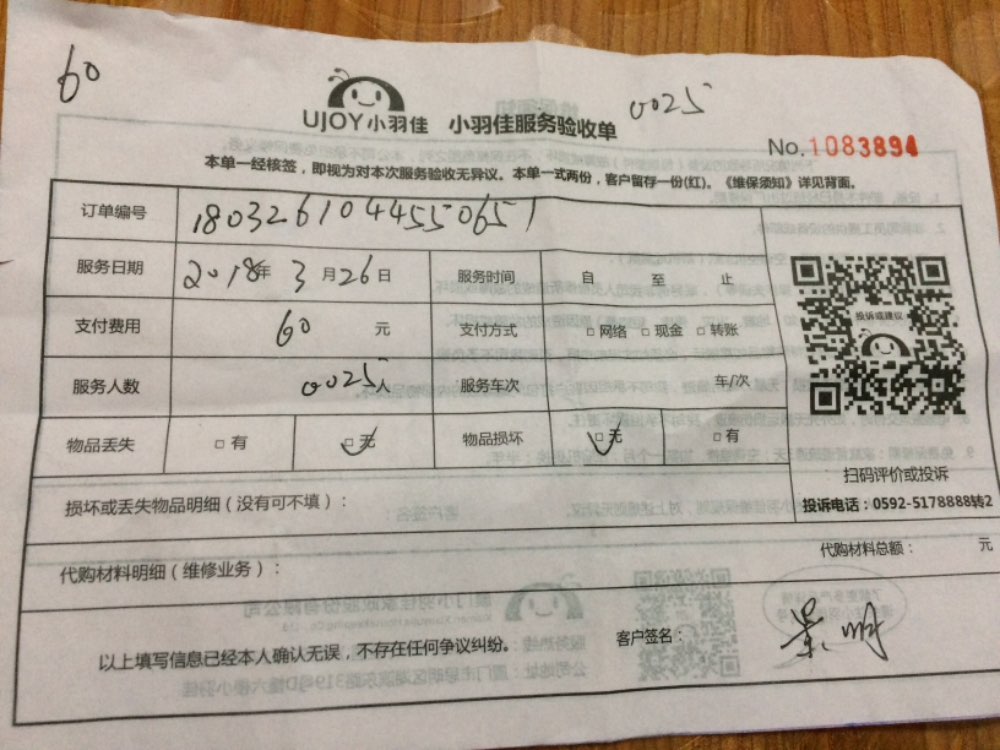 60
UJOY小羽佳 小羽佳服务验收单
0025
No.1083894
本单一经核签，即视为对本次服务验收无异议。本单一式两份，客户留存一份(红)。《维保须知》详见背面。
订单编号 1803261044550651
服务日期 2018年 3月26日 服务时间 自 至 止
支付费用 60 元 支付方式 □网络 □现金 □转账
服务人数 0025人 服务车次 车/次
物品丢失 □有 □无 物品损坏 □无 □有
投诉或建议
扫码评价或投诉
投诉电话：0592-5178888转2
损坏或丢失物品明细（没有可不填）：
代购材料明细（维修业务）： 代购材料总额： 元
以上填写信息已经本人确认无误，不存在任何争议纠纷。 客户签名：